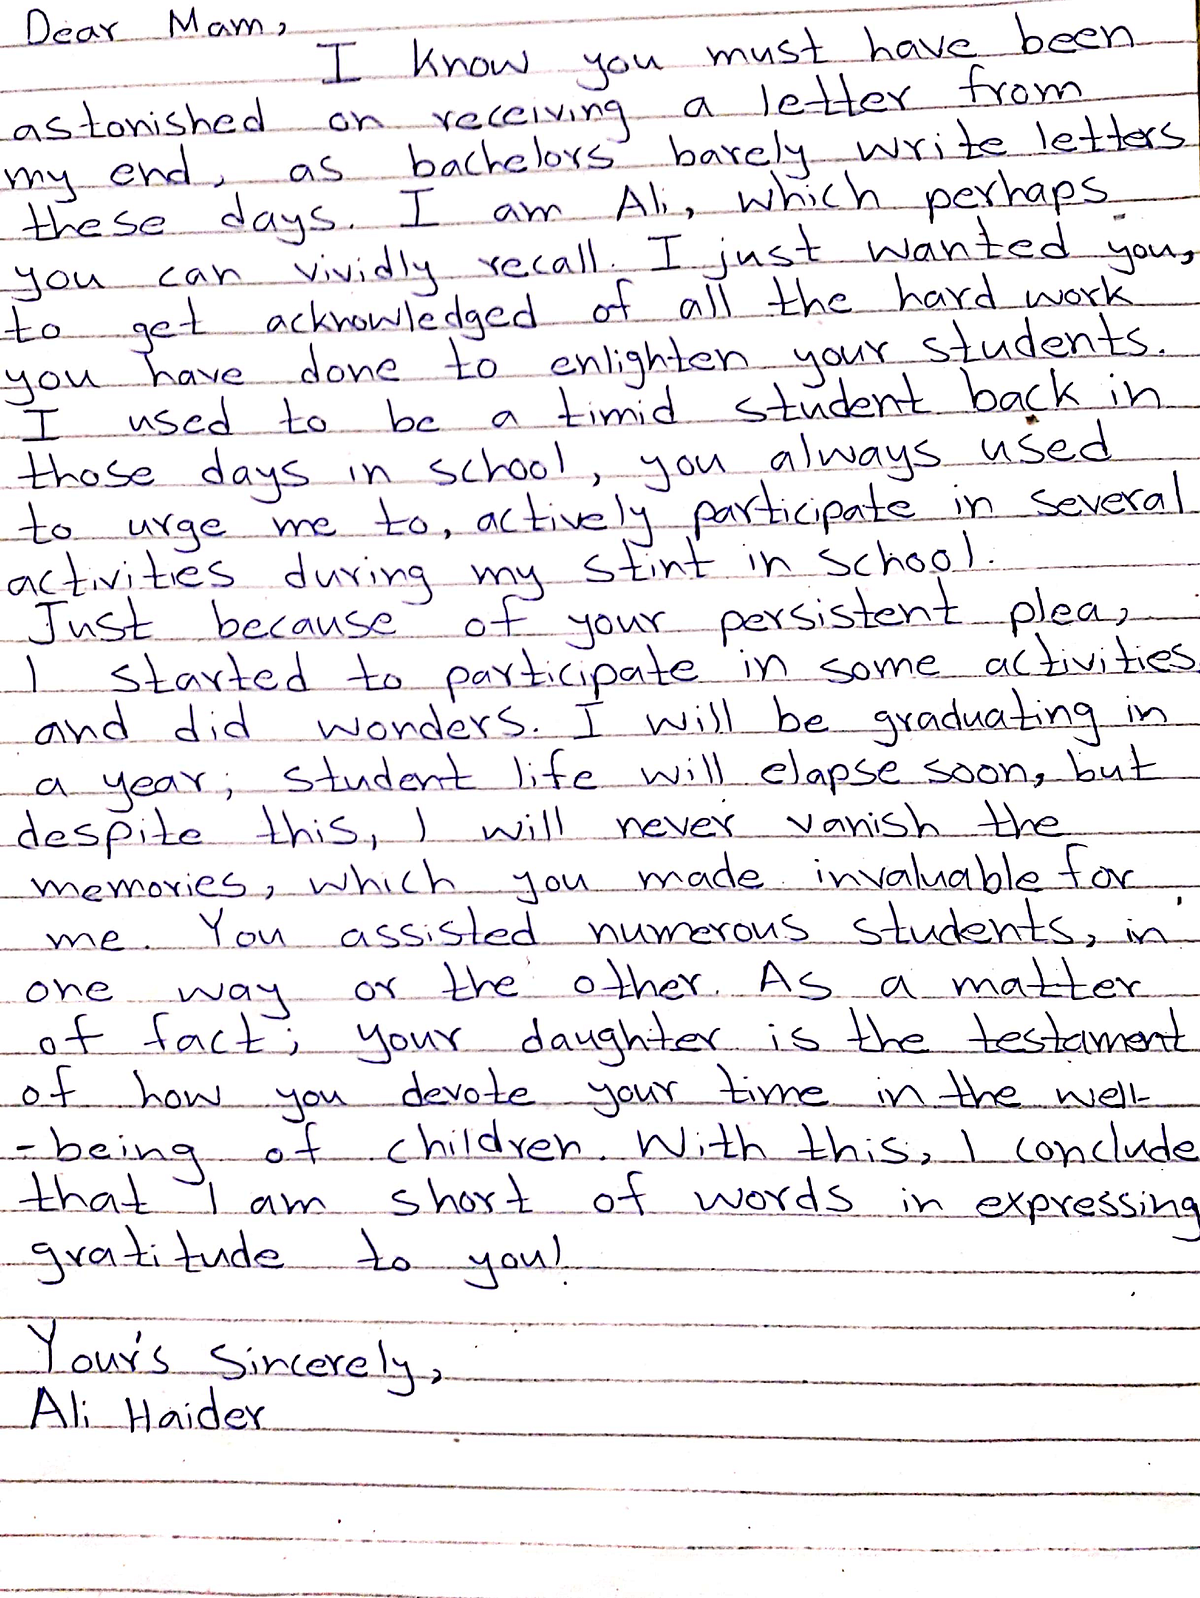 Dear Mam,
I know you must have been
astonished on receiving a letter from
my end, as bachelors barely write letters
these days. I am Ali, which perhaps
you can vividly recall. I just wanted you,
to get acknowledged of all the hard work
you have done to enlighten your students.
I used to be a timid student back in
those days in school, you always used
to urge me to, actively participate in several
activities during my stint in school.
Just because of your persistent plea,
I started to participate in some activities
and did wonders. I will be graduating in
a year; student life will elapse soon, but
despite this, I will never vanish the
memories, which you made invaluable for
me. You assisted numerous students, in
one way or the other. As a matter
of fact; your daughter is the testament
of how you devote your time in the well-
-being of children. With this, I conclude
that I am short of words in expressing
gratitude to you!
Your's Sincerely,
Ali Haider